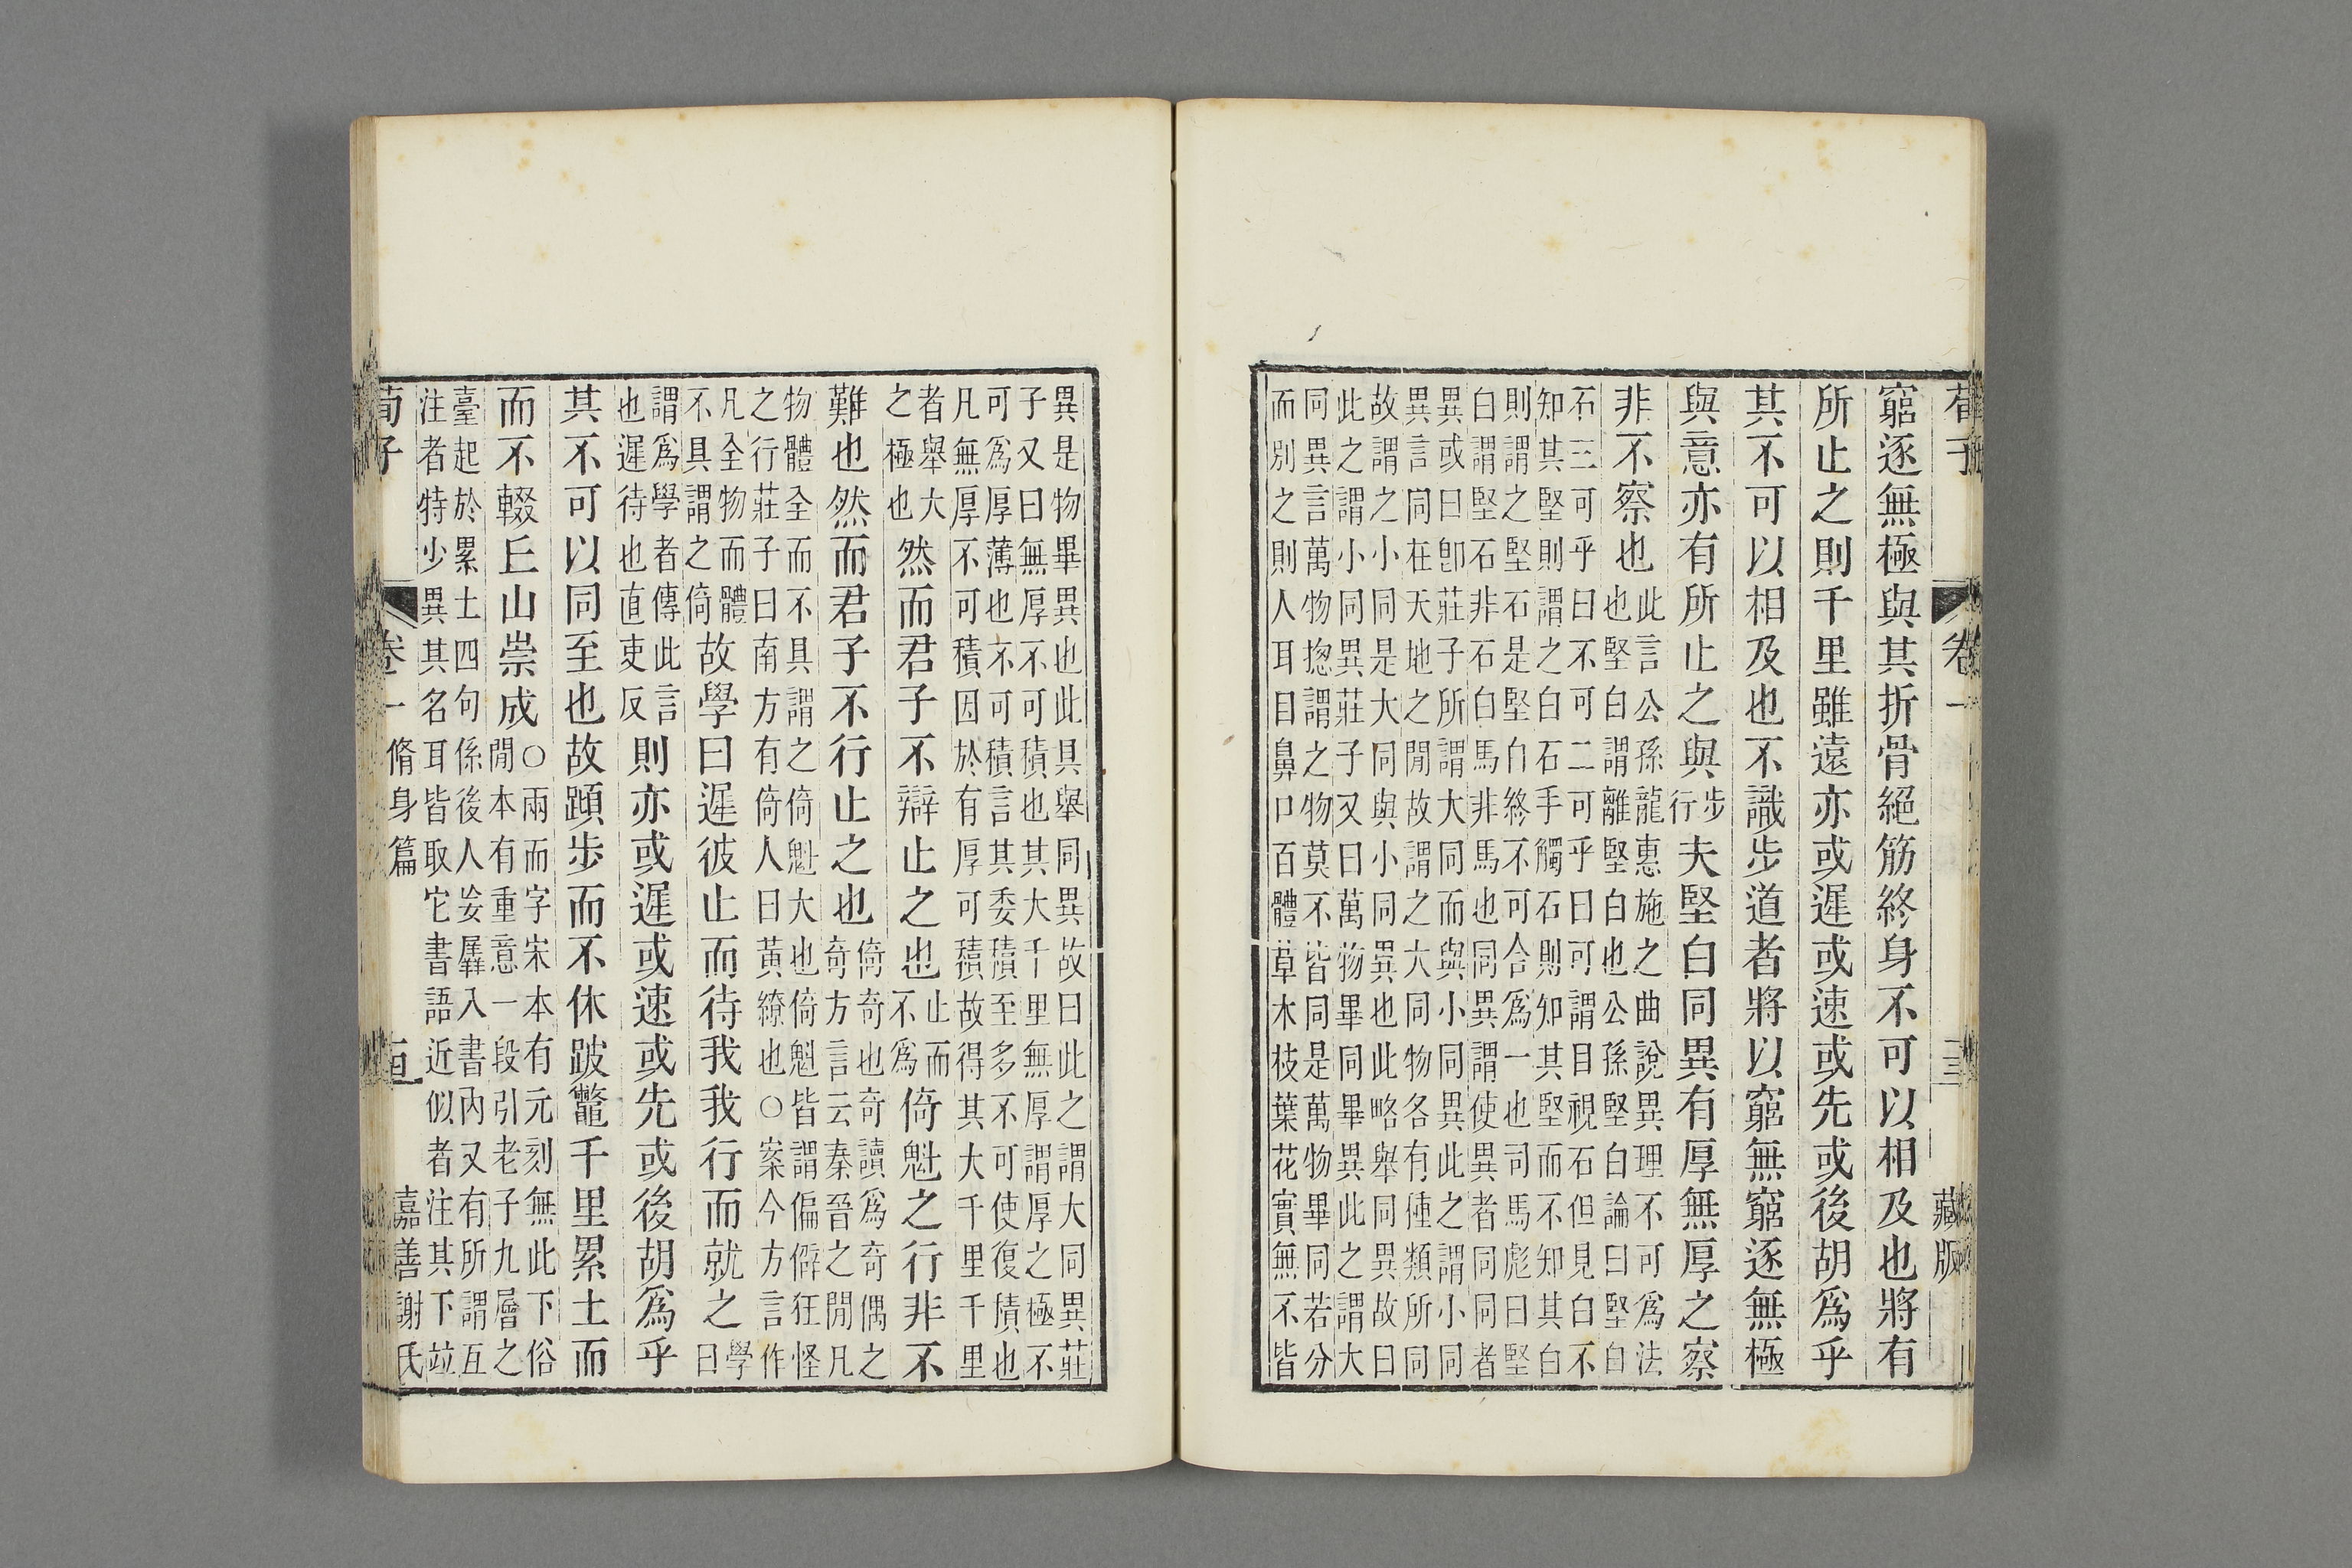 荀子 卷一 藏版
窮逐無極與其折骨絕筋終身不可以相及也將有
所止之則千里雖遠亦或遲或速或先或後胡爲乎
其不可以相及也不識步道者將以窮無窮逐無極
與意亦有所止之與步行夫堅白同異有厚無厚之察
非不察也此言公孫龍惠施之曲說異理不可爲法
也堅白謂離堅白也公孫堅白論曰堅白
石三可乎曰不可二可乎曰可謂目視石但見白不
知其堅則謂之白石手觸石則知其堅而不知其白
則謂之堅石是堅白終不可合爲一也司馬彪曰堅
白謂堅石非石白馬非馬也同異謂使異者同同者
異或曰卽莊子所謂大同而與小同異此之謂小同
異言同在天地之閒故謂之大同物各有種類所同
故謂之小同是大同與小同異也此略舉同異故曰
此之謂小同異莊子又曰萬物畢同畢異此之謂大
同異言萬物揔謂之物莫不皆同是萬物畢同若分
而別之則人耳目鼻口百體草木枝葉花實無不皆
異是物畢異也此具舉同異故曰此之謂大同異莊
子又曰無厚不可積也其大千里無厚謂厚之極不
可爲厚薄也不可積言其委積至多不可使復積也
凡無厚不可積因於有厚可積故得其大千里千里
者舉大之極也然而君子不辯止之也止而不爲倚魁之行非不
難也然而君子不行止之也倚奇也奇讀爲奇偶之
奇方言云秦晉之閒凡
物體全而不具謂之倚魁大也倚魁皆謂偏僻狂怪
之行莊子曰南方有倚人曰黃繚也○案今方言作
凡全物而體不具謂之倚故學曰遲彼止而待我我行而就之學曰
謂爲學者傳此言也遲待也直吏反則亦或遲或速或先或後胡爲乎
其不可以同至也故蹞步而不休跛鼈千里累土而
而不輟丘山崇成○兩而字宋本有元刻無此下俗
閒本有重意一段引老子九層之
臺起於累土四句係後人妄羼入書內又有所謂互
注者特少異其名耳皆取它書語近似者注其下竝
荀子 卷一 脩身篇 嘉善謝氏